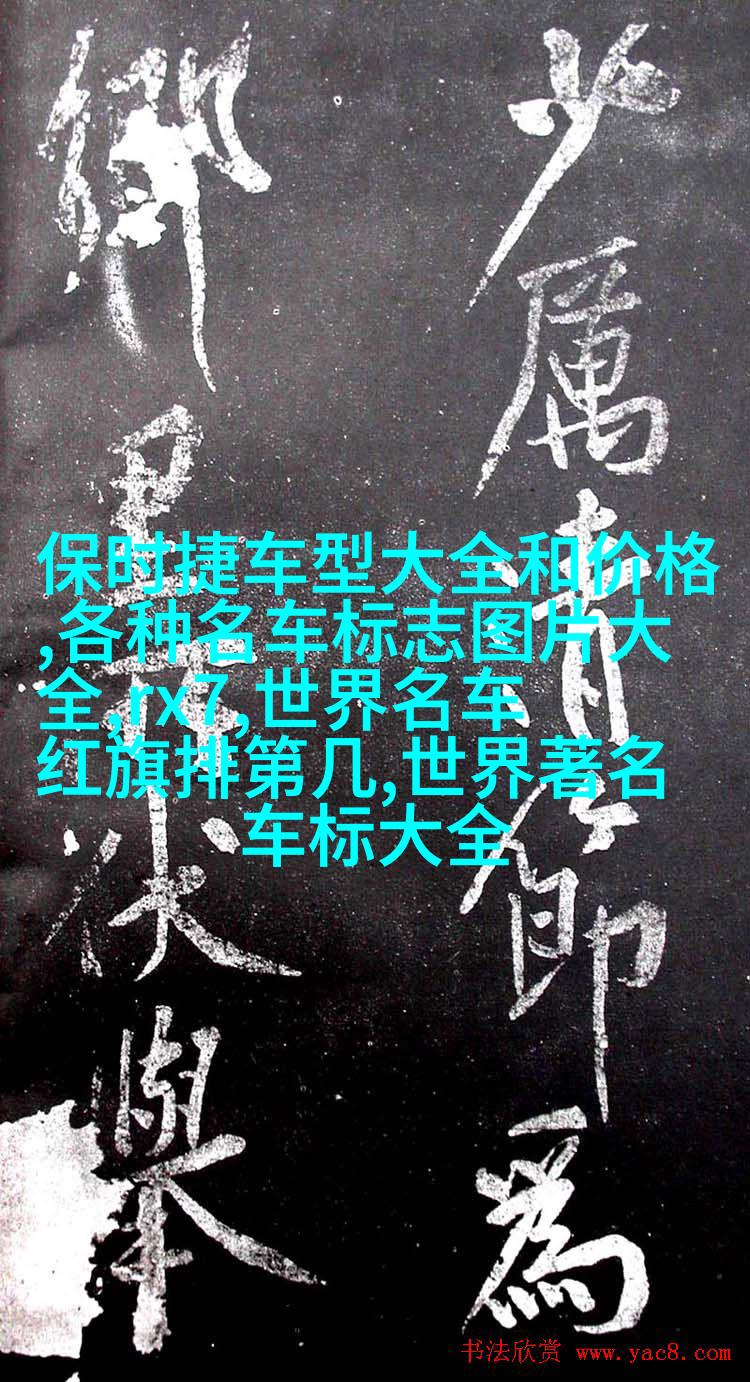 少厲清節為
鄉里所伏舉
保时捷车型大全和价格
,各种名车标志图片大
全,rx7,世界名车
红旗排第几,世界著名
车标大全
书法欣赏 www.yac8.com